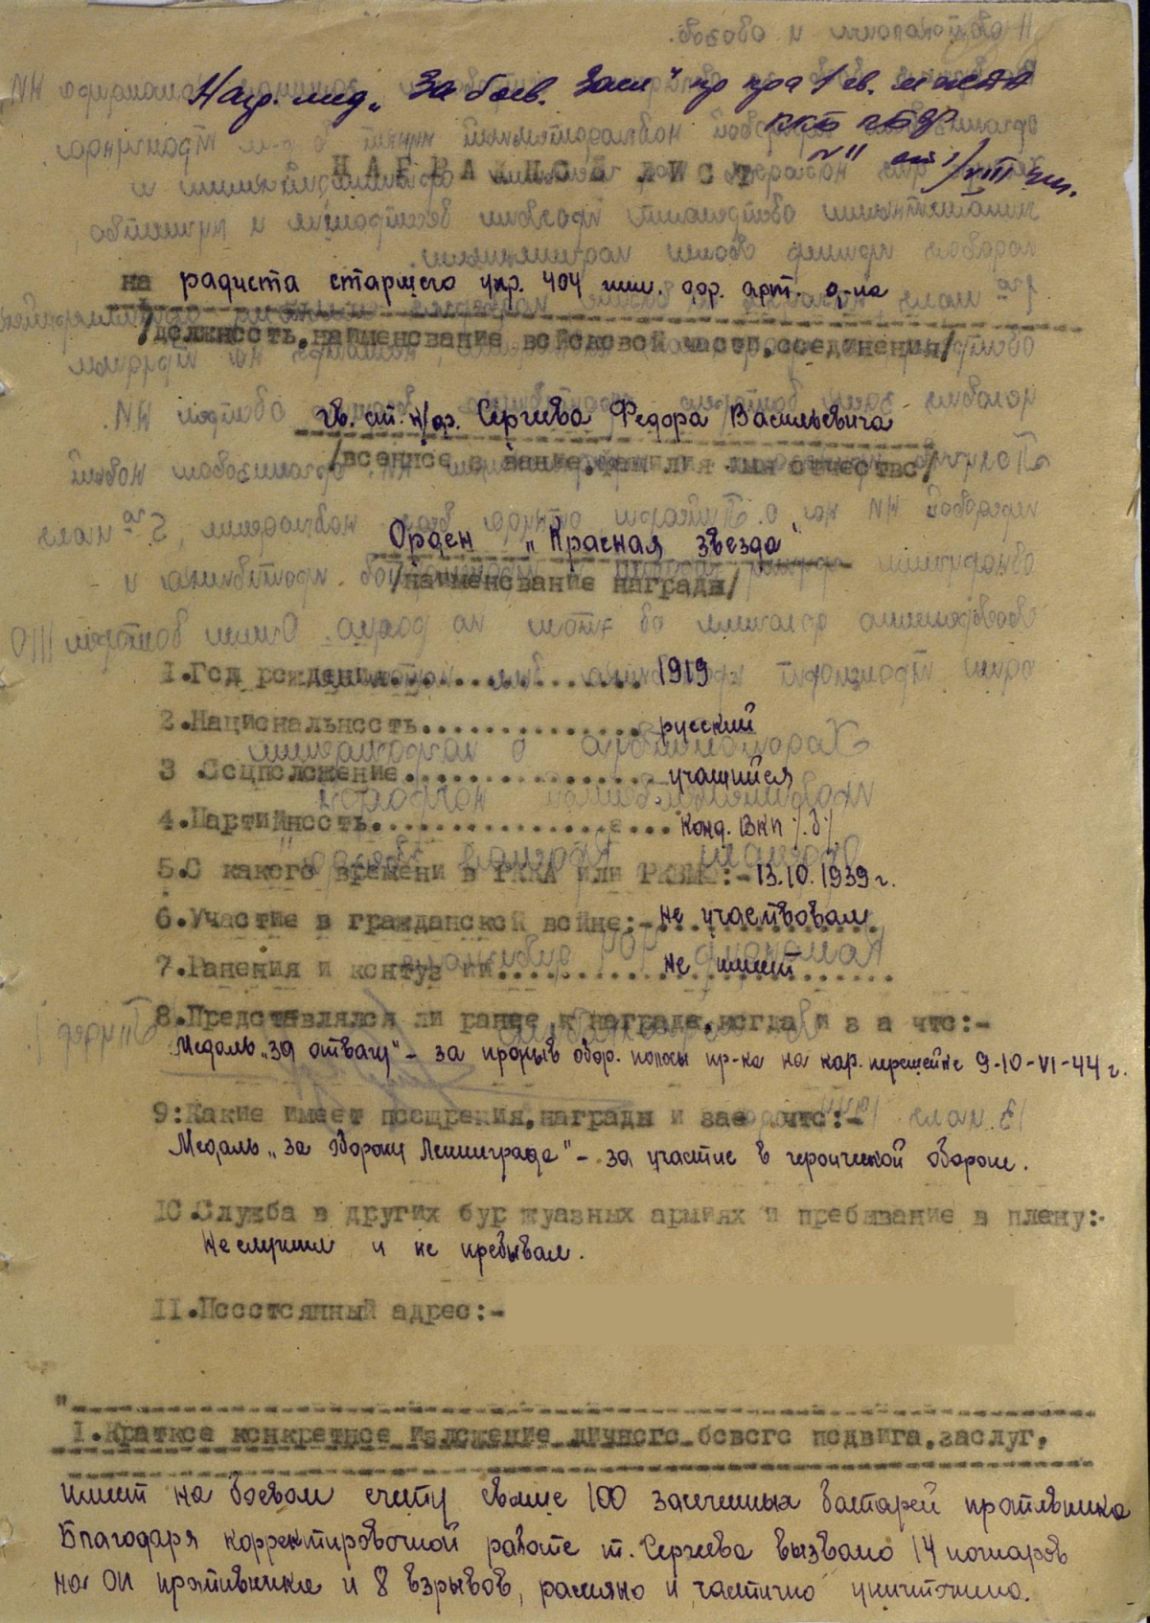 Нагр. мед. „За боев. засл" пр
НАГРАДНОЙ ЛИСТ
на радиста старшего упр. 404 арт. д-на
/должность, наименование войсковой части, соединения/
гв. ст. Сергеева Федора Васильевича
/военное звание, фамилия имя отчество/
Орден „Красная звезда"
/наименование награды/
1.Год рождения 1919
2.Национальность русский
3 .Соцположение учащийся
4.Партийность Канд. ВКП /б/
5.С какого времени в РККА или РКВМФ:- 13.10.1939 г.
6.Участие в гражданской войне:- не участвовал
7.Ранения и контузии не имеет
8.Представлялся ли ранее к награде, когда и за что:-
Медаль „за отвагу" - за прорыв обор. полосы пр-ка на кар. перешейке 9-10-VI-44 г.
9:Какие имеет поощрения, награды и за что:-
Медаль „за оборону Ленинграда" - за участие в героической обороне.
10.Служба в других буржуазных армиях и пребывание в плену:-
Не служил и не пребывал.
11.Постоянный адрес:-
1.Краткое конкретное изложение личного боевого подвига, заслуг.
имеет на боевом счету свыше 100 засеченных батарей противника
Благодаря корректировочной работе т. Сергеева вызвано 14 пожаров
на ОП противника и 8 взрывов, рассеяно и частично уничтожено.